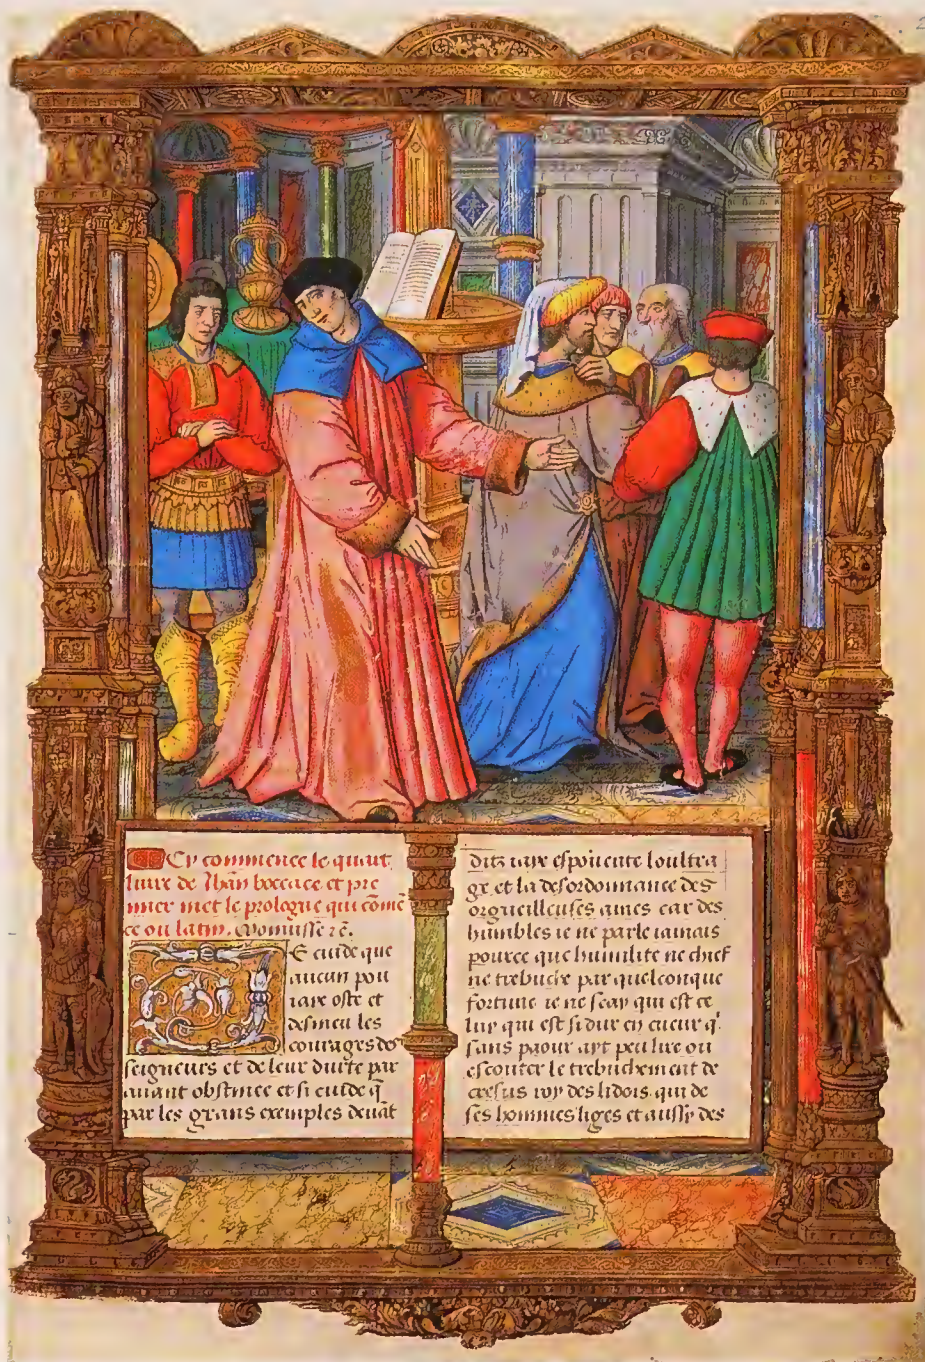 Cy commence le quart
liure de Jhan boccace et pre
mier met le prologue qui cōmē
ce ou latin.
E cuide que
aucun pou
iaye oste et
desmeu les
courages des
seigneurs et de leur durte par
auant obstinee et si cuide q̄
par les grans exemples deuāt
ditz iaye espouente loultra
ge et la desordonnance des
orgueilleuses ames car des
humbles ie ne parle iamais
pource que humilite ne chiet
ne trebuche par quelconque
fortune ie ne scay qui est ce
luy qui est si dur en cueur q̄
sans paour ayt peu lire ou
escouter le trebuchement de
cresus roy des lidois qui de
ses hommes liges et aussy des